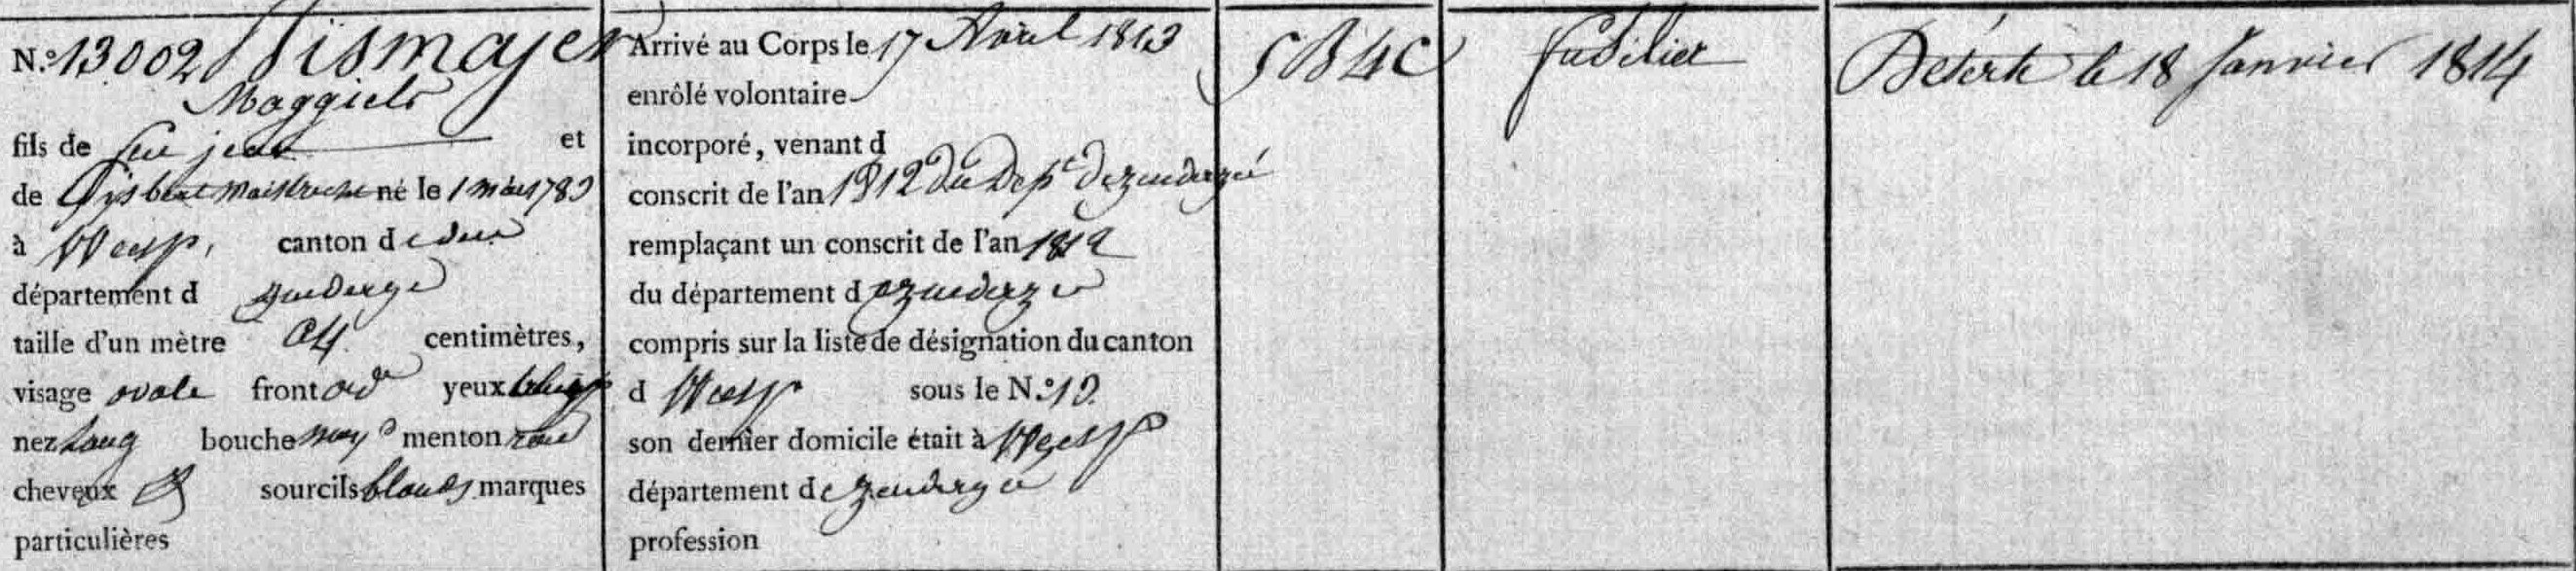 N.º 13002 Sismayer
Maggiel
fils de feu jean et
de Gysbert né le 1 1783
à Weesp, canton de
département d zuiderzé
taille d'un mètre 64 centimètres,
visage ovale front ord yeux bleus
nez long bouche moy menton rond
cheveux sourcils blonds marques
particulières
Arrivé au Corps le 17 Avril 1813
enrôlé volontaire
incorporé, venant d
conscrit de l'an 1812 du Dept de zuiderzée
remplaçant un conscrit de l'an 1812
du département d zuiderzee
compris sur la liste de désignation du canton
d Weesp sous le N.º 19.
son dernier domicile était à Weesp
département de zuiderzee
profession
5B4C
fusilier
Déserté le 18 Janvier 1814